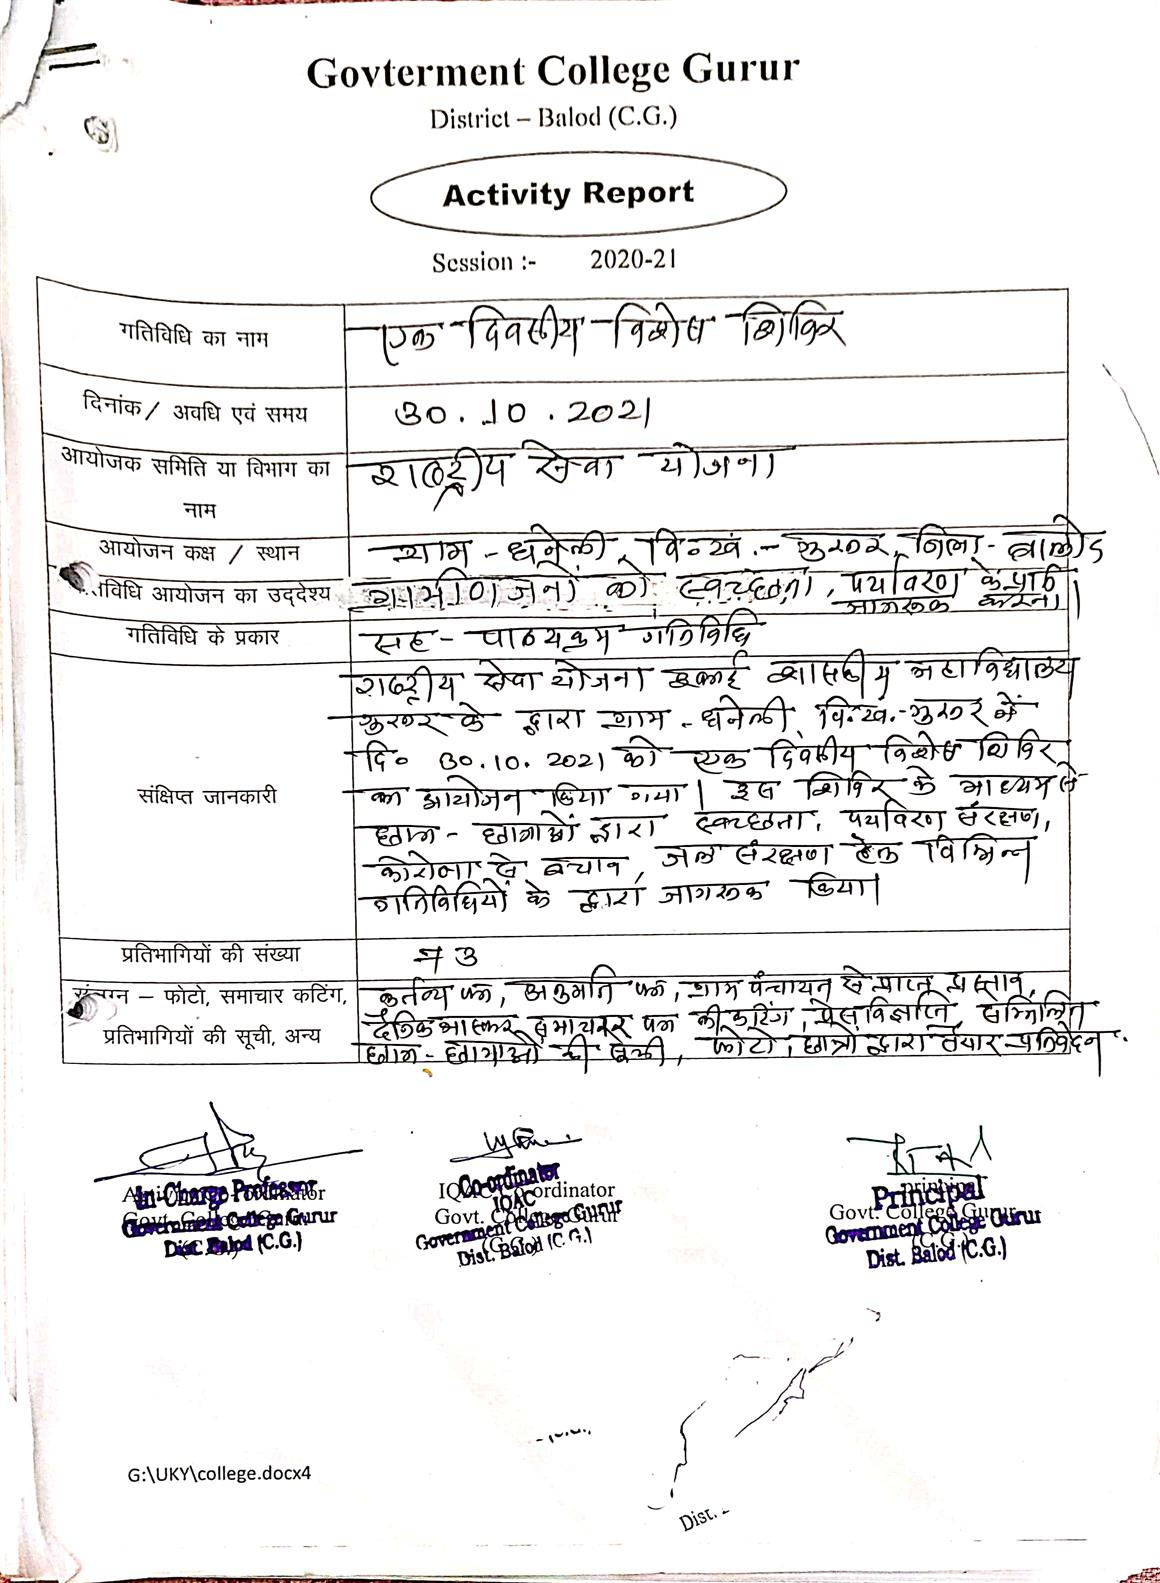 Govterment College Gurur
District – Balod (C.G.)
Activity Report
Session :- 2020-21
गतिविधि का नाम
एक दिवसीय विशेष शिविर
दिनांक / अवधि एवं समय
30.10.2021
आयोजक समिति या विभाग का
नाम
राष्ट्रीय सेवा योजना
आयोजन कक्ष / स्थान
ग्राम - धनेली, वि.खं.- गुरुर, जिला - बालोद
विधि आयोजन का उद्देश्य
ग्रामीणजनों को स्वच्छता, पर्यावरण के प्रति
जागरूक करना।
गतिविधि के प्रकार
सह - पाठ्यक्रम गतिविधि
संक्षिप्त जानकारी
राष्ट्रीय सेवा योजना इकाई शासकीय महाविद्यालय
गुरुर के द्वारा ग्राम - धनेली, वि.खं.- गुरुर में
दि० 30.10.2021 को एक दिवसीय विशेष शिविर
का आयोजन किया गया। इस शिविर के माध्यम से
छात्र - छात्राओं द्वारा स्वच्छता, पर्यावरण संरक्षण,
कोरोना से बचाव, जल संरक्षण हेतु विभिन्न
गतिविधियों के द्वारा जागरूक किया।
प्रतिभागियों की संख्या
73
संलग्न – फोटो, समाचार कटिंग,
प्रतिभागियों की सूची, अन्य
कर्तव्य पत्र, अनुमति पत्र, ग्राम पंचायत से प्राप्त प्रस्ताव,
दैनिक भास्कर समाचार पत्र की कटिंग, प्रेस विज्ञप्ति, सम्मिलित
छात्र - छात्राओं की फोटो, छात्रों द्वारा तैयार प्रतिवेदन
In-Charge Professor
Government College Gurur
Dist. Balod (C.G.)
Co-ordinator
IQAC Co-ordinator
IQAC
Govt. College Gurur
Government College Gurur
Dist. Balod (C.G.)
principal
Principal
Govt. College Gurur
Government College Gurur
Dist. Balod (C.G.)
G:\UKY\college.docx4
Dist. -